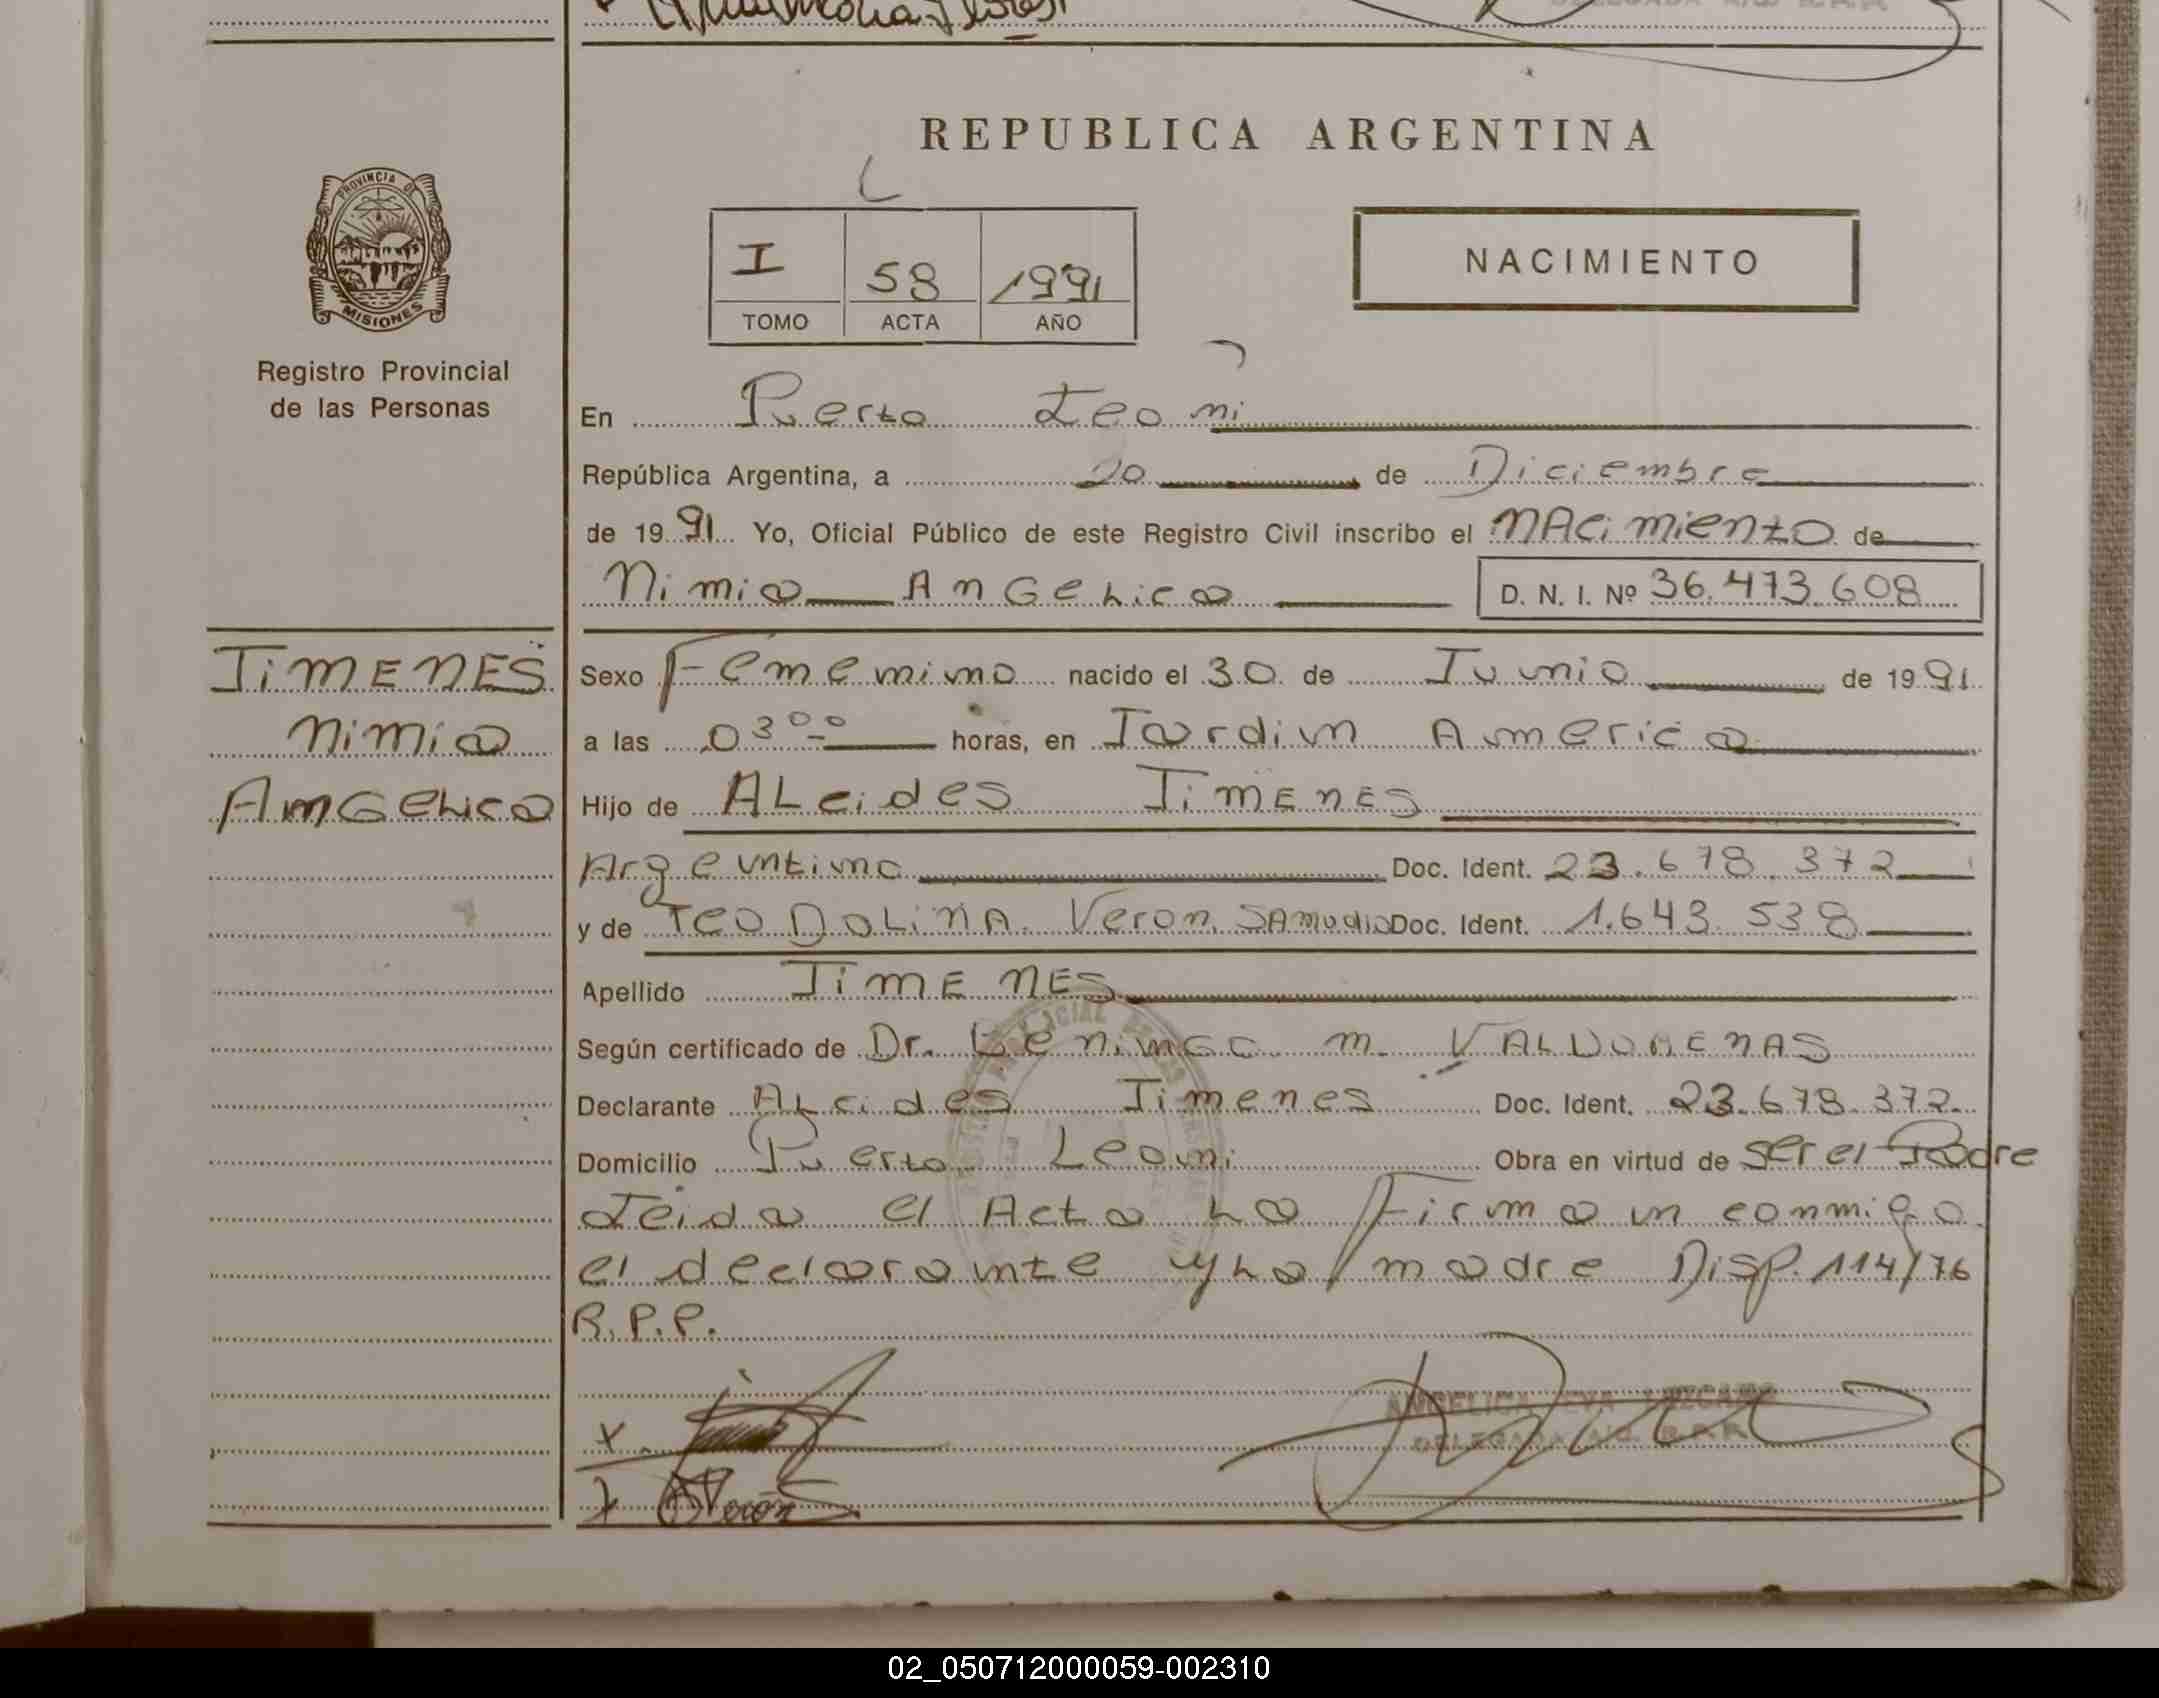 REPUBLICA ARGENTINA
PROVINCIA DE
MISIONES
Registro Provincial
de las Personas
I 58 1991
TOMO ACTA AÑO
NACIMIENTO
En Puerto Leoni
República Argentina, a 20 de Diciembre
de 1991 Yo, Oficial Público de este Registro Civil inscribo el NAcimiento de
Nimia Angelica D. N. I. Nº 36.473.608
JiMENES
Nimia
Angelica
Sexo Femenino nacido el 30 de Junio de 1991
a las 03 00 horas, en Jardin America
Hijo de ALcides JiMENES
Argentino Doc. Ident. 23.678.372
y de TEODOLiNA Veron SAmudio Doc. Ident. 1.643.538
Apellido JiMENES
Según certificado de Dr. M. VALDOMENAS
Declarante ALcides Jimenes Doc. Ident. 23.678.372
Domicilio Puerto Leoni Obra en virtud de ser el Padre
Leida el Acta La Firman conmigo
el declarante y La madre Disp. 114/76
R.P.P.
ANGELICA EVA
DELEGADA R.P.P.
x
x Verón
02_050712000059-002310